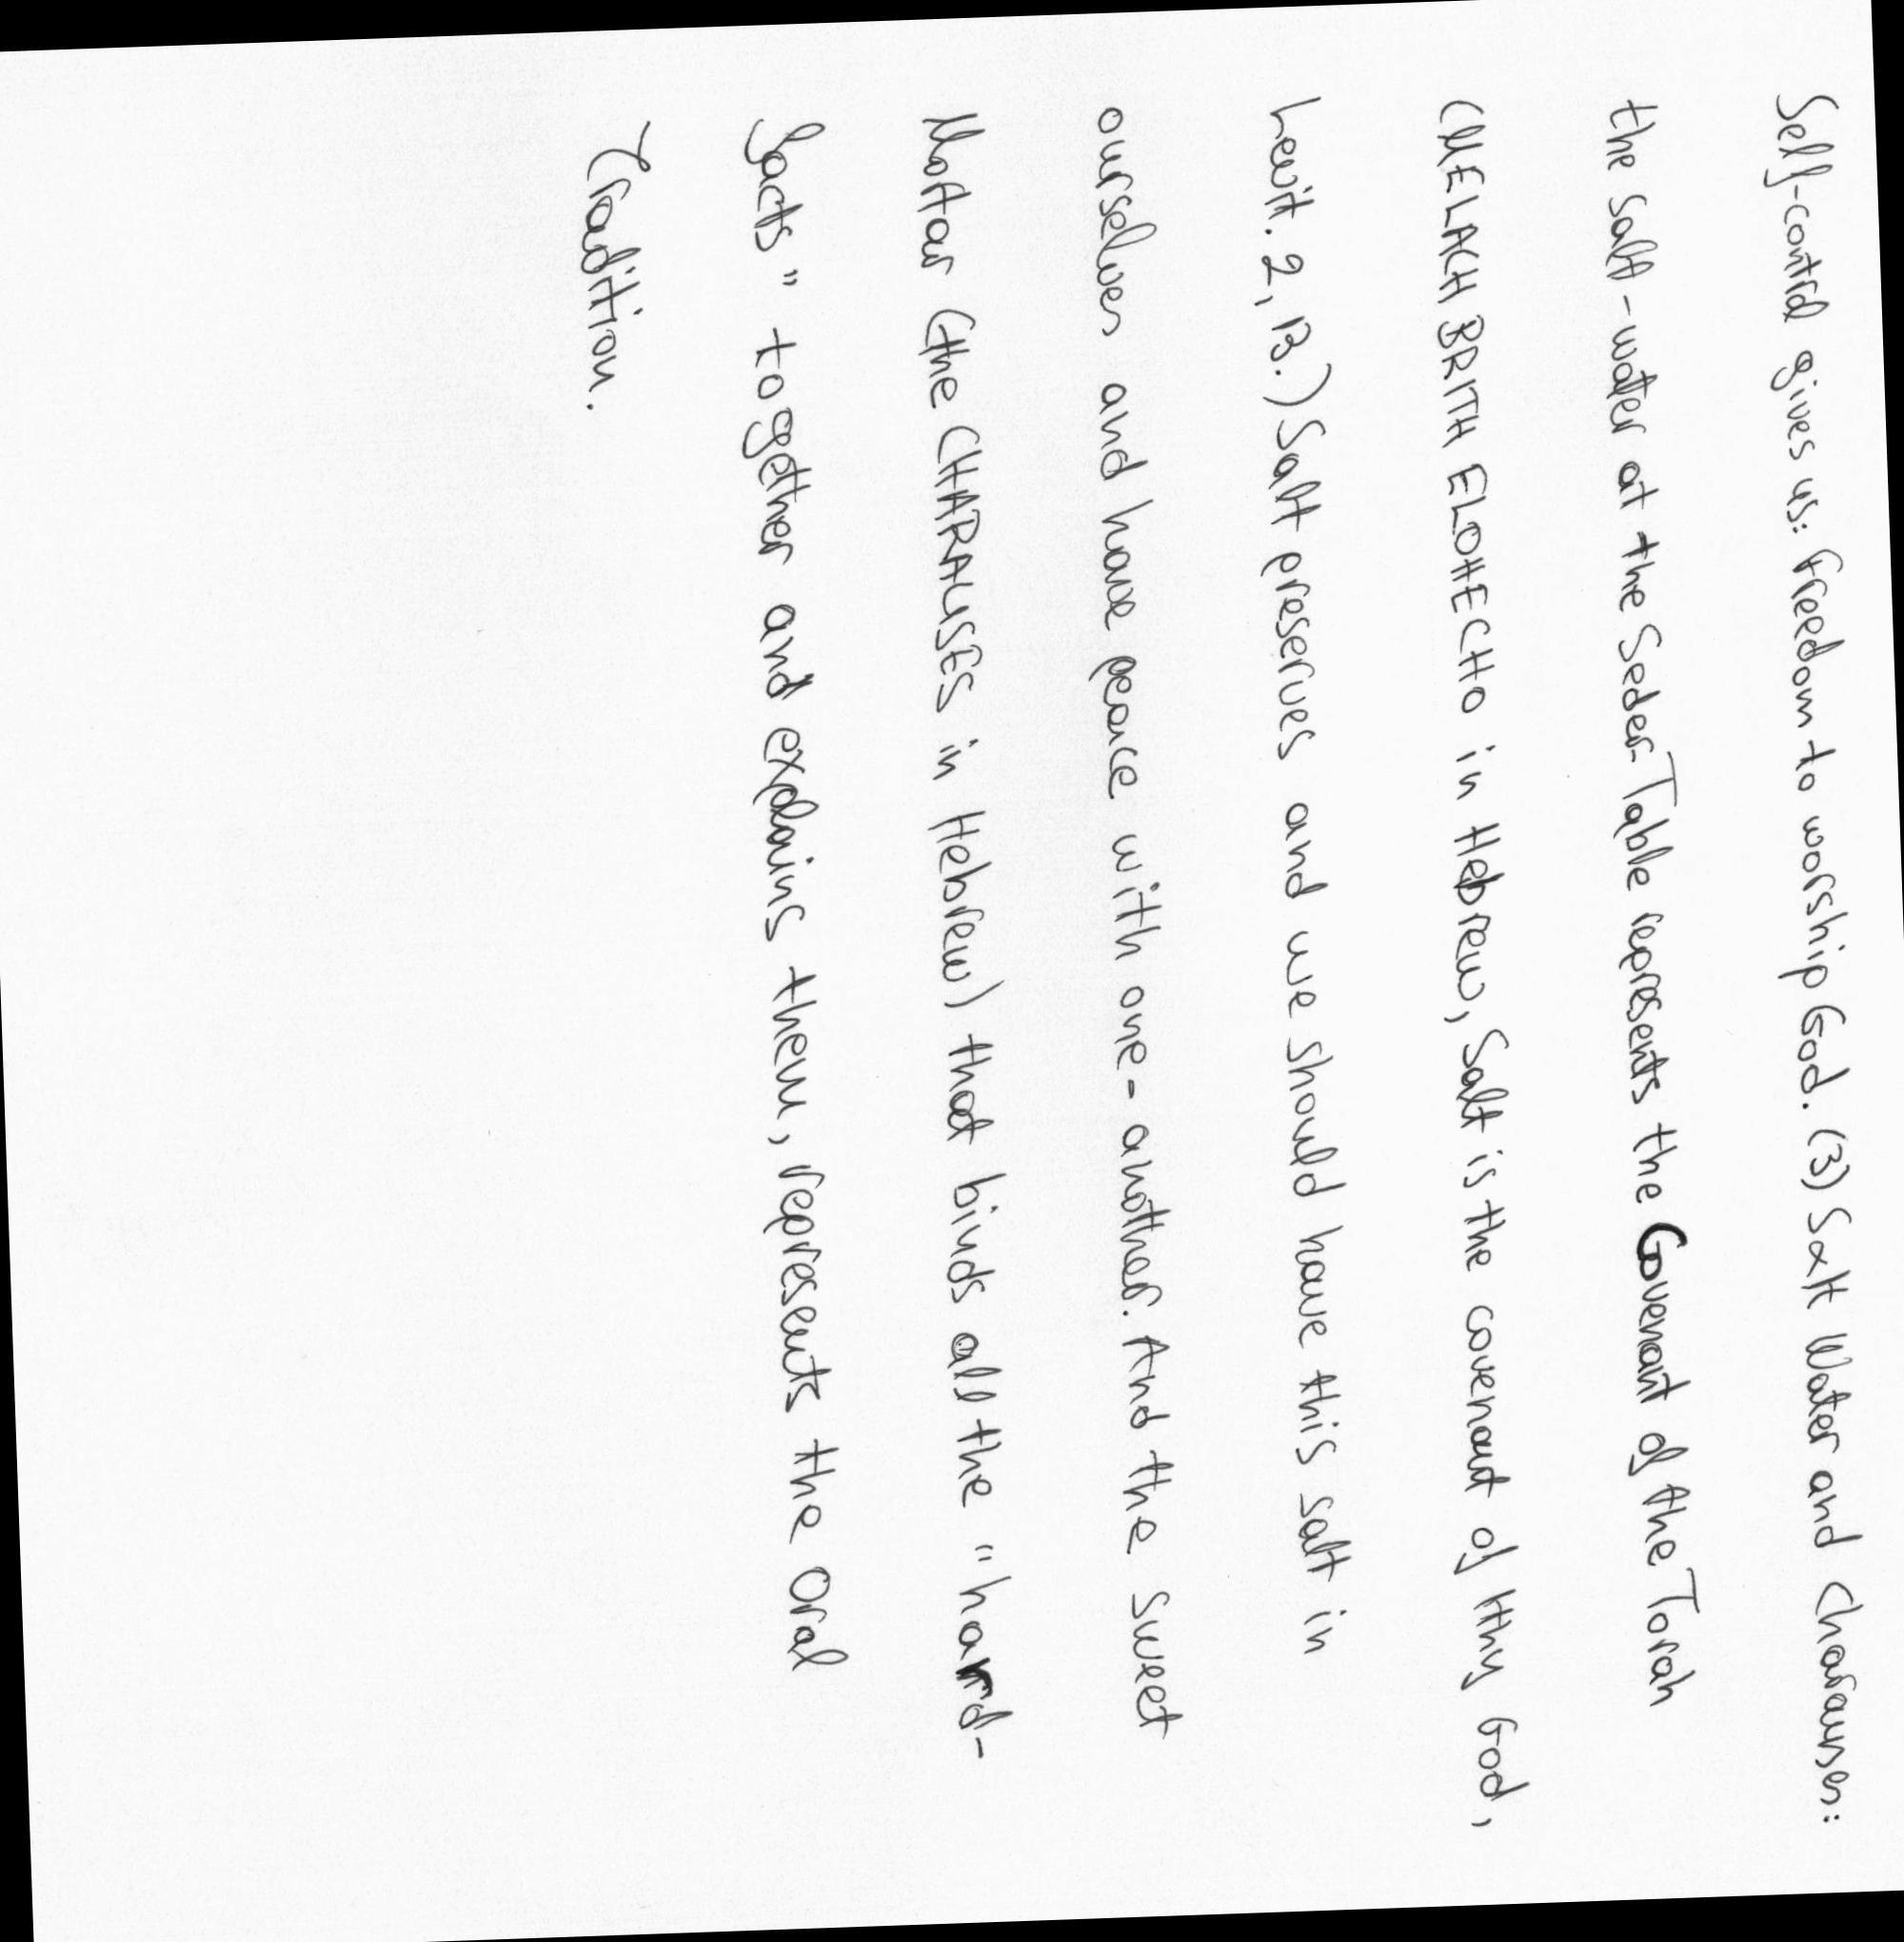 Self-control gives us: freedom to worship God. (3) Salt Water and Charauses:
the salt-water at the Seder-Table represents the Covenant of the Torah
(MELACH BRITH ELOHECHO in Hebrew, Salt is the covenant of thy God,
Levit. 2, 13.) Salt preserves and we should have this salt in
ourselves and have peace with one-another. And the sweet
Mortar (the CHARAUSES in Hebrew) that binds all the "hard-
facts" together and explains them, represents the Oral
Tradition.